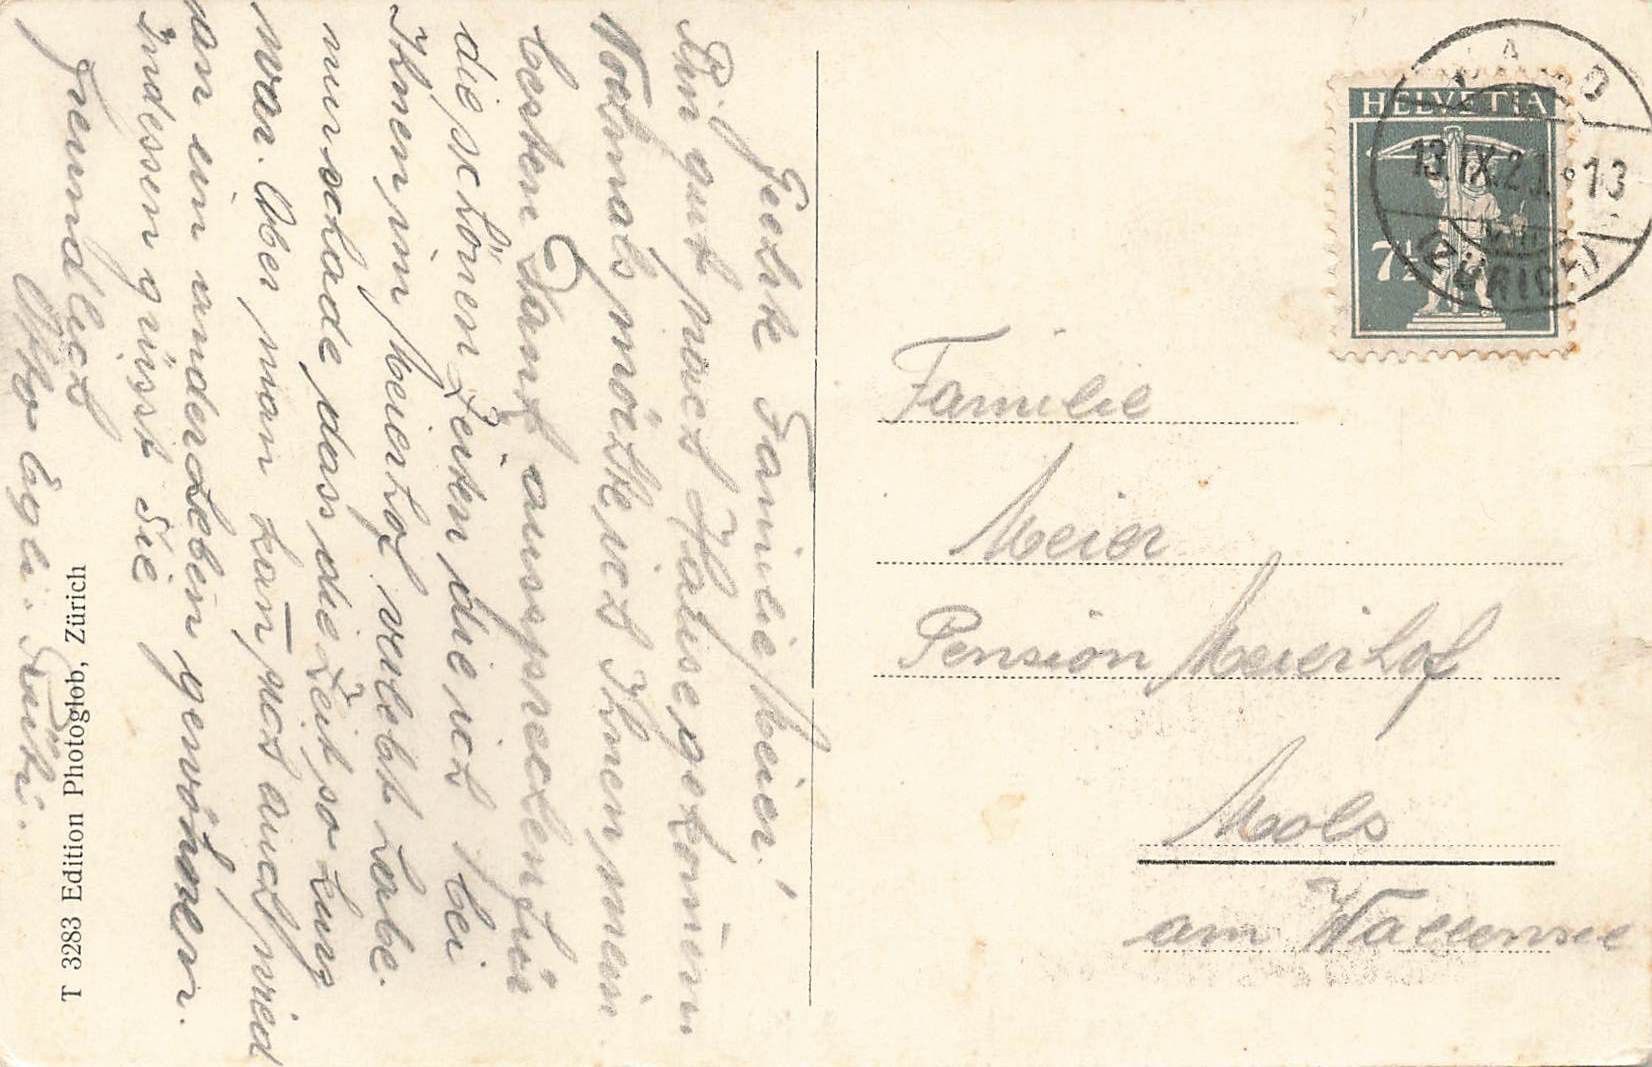 Geehrte Familie Meier!
Bin gut nach Hause gekom̄en
Nochmals möchte ich Ihnen mein
besten Dank aussprechen für
die schönen Zeiten die ich bei
Ihnen im Meierhof verlebt habe.
nur schade dass die Zeit so kurz
war. Aber man kan̄ sich auch wied
an ein anderleben gewöhnen.
indessen grüsst Sie
freundlich
Otto Egli. Rüti.
T 3283 Edition Photoglob, Zürich
HELVETIA
7½
WALD
13.IX.21.-13
(ZÜRICH)
Familie
Meier
Pension Meierhof
Mols
am Wallensee